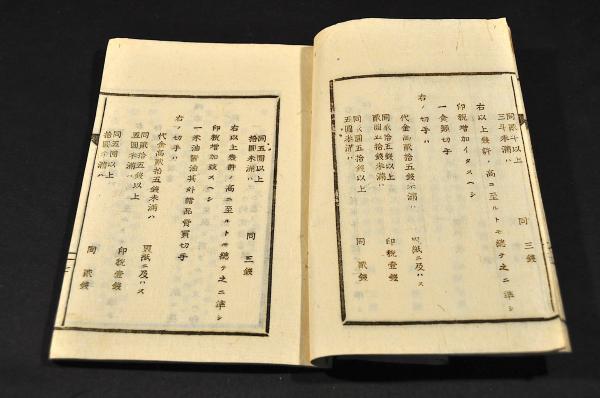 同貳斗以上
三斗未滿ハ 同 三錢
右以上幾許ノ高ニ至ルトモ總テ之ニ準シ
印税増加イタスヘシ
一食類切手
右ノ切手ハ
代金高貳拾五錢未滿ハ 界紙ニ及ハス
同貳拾五錢以上
貳圓五拾錢未滿ハ 印税壹錢
同貳圓五拾錢以上
五圓未滿ハ 同 貳錢
同五圓以上
拾圓未滿ハ 同 三錢
右以上幾許ノ高ニ至ルトモ總テ之ニ準シ
印税増加致スヘシ
一米油醤油其外諸品賣買切手
右ノ切手ハ
代金高貳拾五錢未滿ハ 界紙ニ及ハス
同貳拾五錢以上
五圓未滿ハ 印税壹錢
同五圓以上
拾圓未滿ハ 同 貳錢